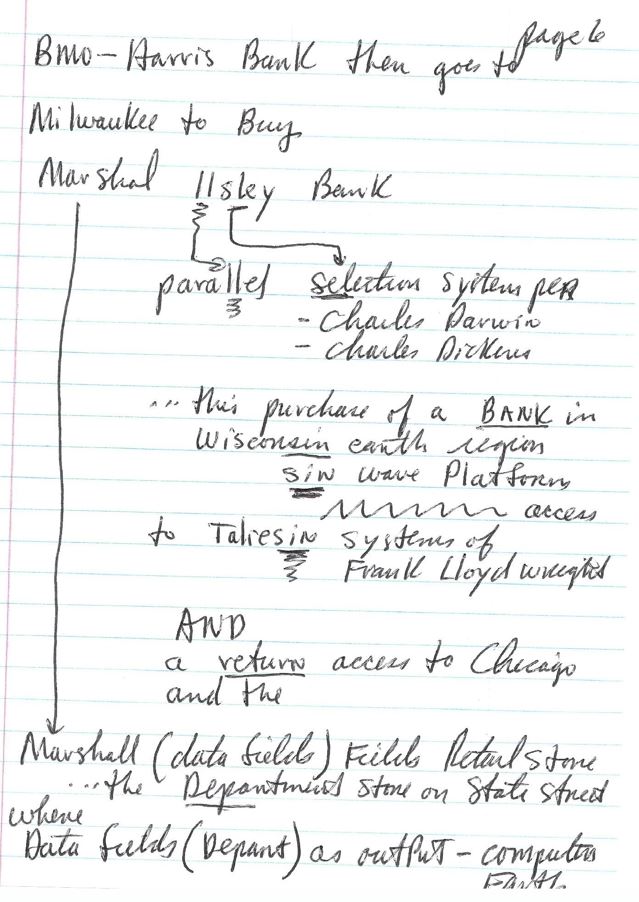 page 6
BMO-Harris Bank then goes to
Milwaukee to Buy
Marshal Ilsley Bank
parallel selection system per
- Charles Darwin
- Charles Dickens
... this purchase of a BANK in
Wisconsin earth region
sin wave Platform
access
to Taliesin systems of
Frank Lloyd wright
AND
a return access to Chicago
and the
Marshall (data fields) Fields Retail Store
...the Department Store on State Street
where
Data fields (Depart) as output - computer
Earth